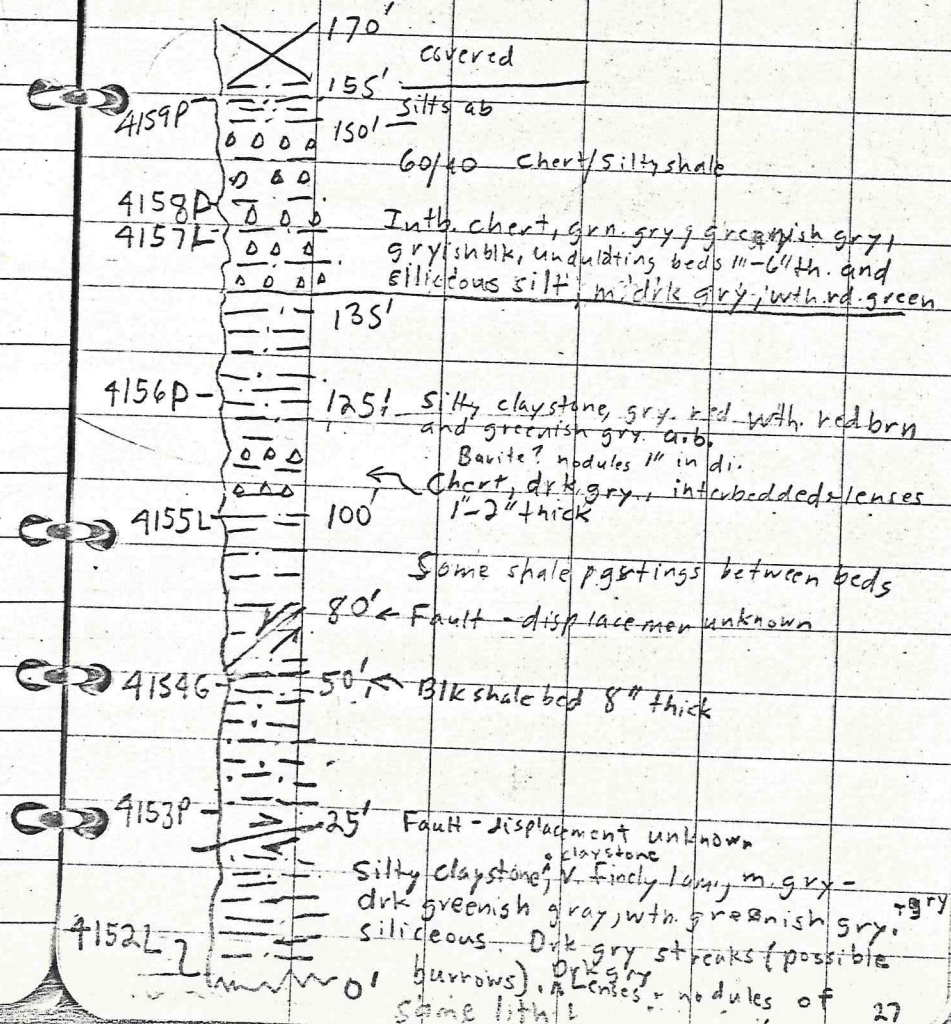 170'
covered
155'
4159P
Silts ab
150'
60/40 Chert/Silty shale
4158P
4157L
Intb. chert, grn. gry, greenish gry,
gryishblk, undulating beds 1"-6" th. and
siliceous silt, m. drk gry, wth. rd. green
135'
4156P
125'
Silty claystone, gry. red wth. redbrn
and greenish gry. a.b.
Barite? nodules 1" in di.
Chert, drk. gry., interbedded & lenses
1"-2" thick
4155L
100'
Some shale partings between beds
80' ← Fault - displacemen unknown
4154G
50' ← Blk shale bed 8" thick
4153P
25'
Fault - displacement unknown
claystone
Silty claystone, v. finely lam, m. gry -
drk greenish gray, wth. greenish gry. + gry
siliceous. Drk gry streaks (possible
burrows). Drk gry Lenses + nodules of
4152L
0'
same lith
27